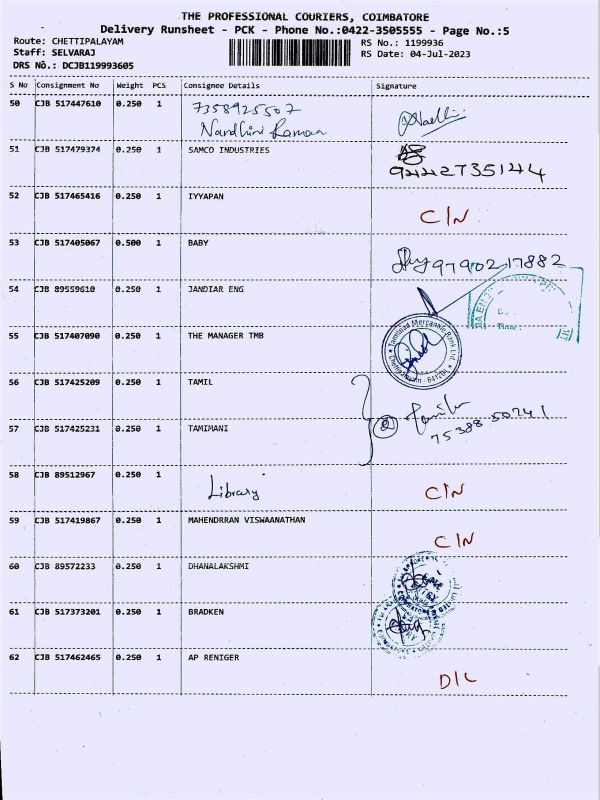 THE PROFESSIONAL COURIERS, COIMBATORE
Delivery Runsheet - PCK - Phone No.:0422-3505555 - Page No.:5
Route: CHETTIPALAYAM RS No.: 1199936
Staff: SELVARAJ RS Date: 04-Jul-2023
DRS No.: DCJB119993605
S No Consignment No Weight PCS Consignee Details Signature
50 CJB 517447610 0.250 1 7358925507
Nandhini Raman
51 CJB 517479374 0.250 1 SAMCO INDUSTRIES
9442735144
52 CJB 517465416 0.250 1 IYYAPAN C/N
53 CJB 517405067 0.500 1 BABY 9790217882
54 CJB 89559610 0.250 1 JANDIAR ENG
55 CJB 517407090 0.250 1 THE MANAGER TMB Tamilnad Mercantile Bank Ltd. Chettipalayam - 641201
56 CJB 517425209 0.250 1 TAMIL
57 CJB 517425231 0.250 1 TAMIMANI 2 75388 50741
58 CJB 89512967 0.250 1 Library C/N
59 CJB 517419867 0.250 1 MAHENDRRAN VISWAANATHAN C/N
60 CJB 89572233 0.250 1 DHANALAKSHMI
61 CJB 517373201 0.250 1 BRADKEN
62 CJB 517462465 0.250 1 AP RENIGER D/L